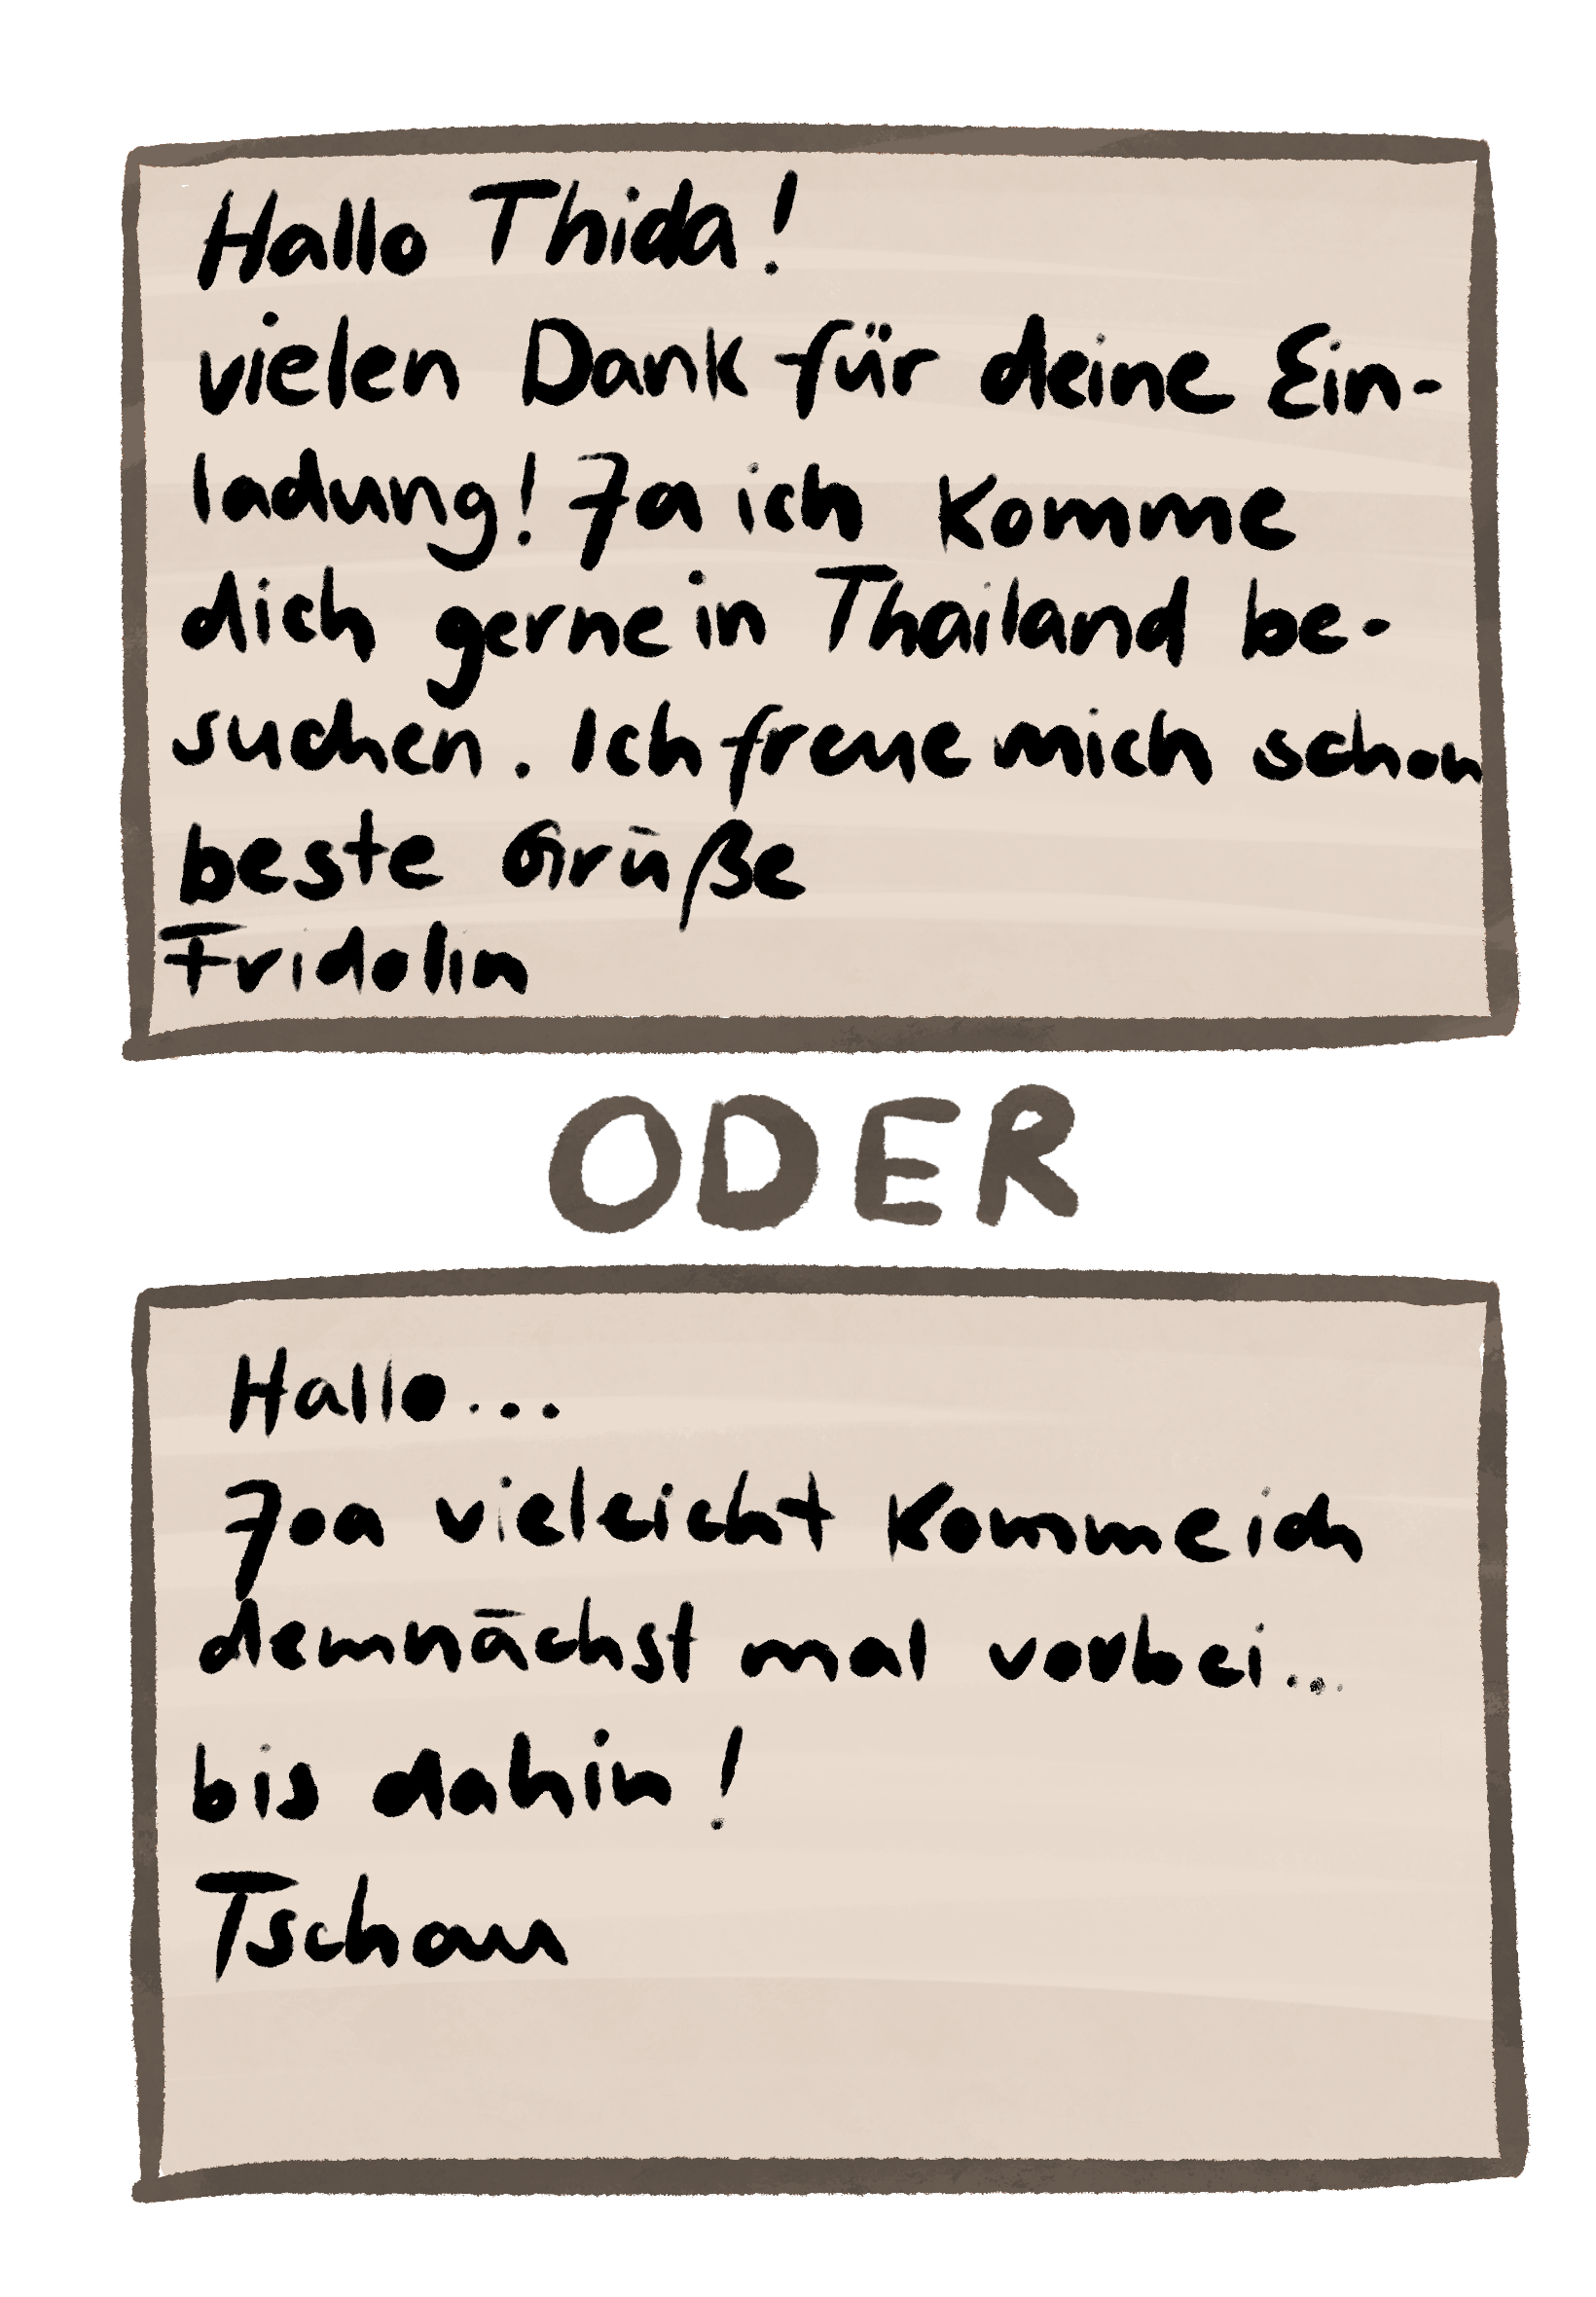 Hallo Thida!
vielen Dank für deine Ein-
ladung! Ja ich komme
dich gerne in Thailand be-
suchen. Ich freue mich schon
beste Grüße
Fridolin
ODER
Hallo...
Joa vieleicht komme ich
demnächst mal vorbei...
bis dahin!
Tschau